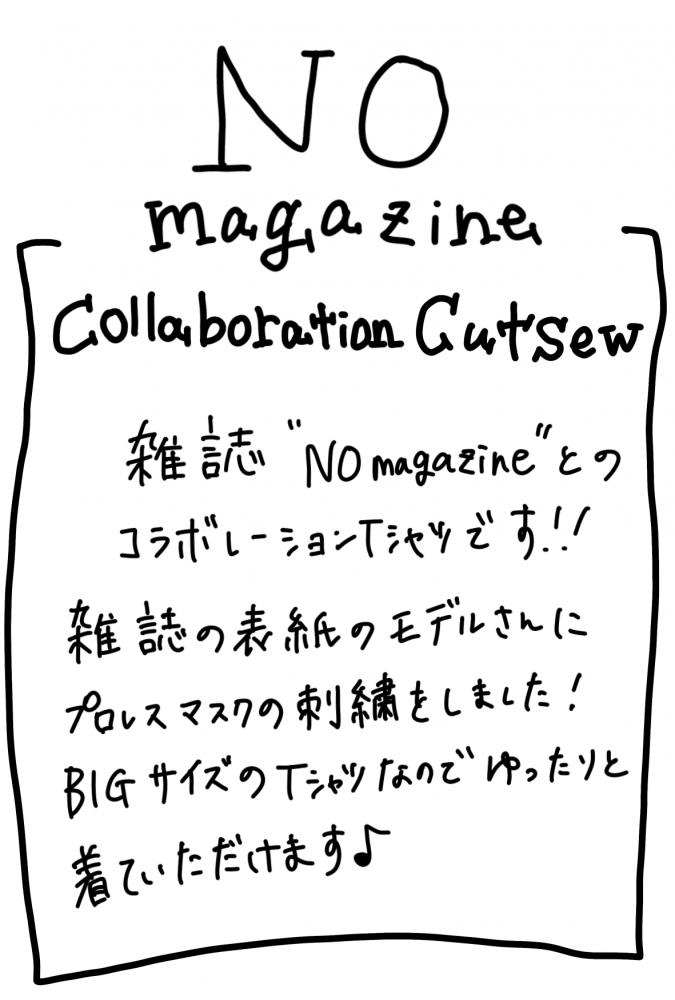 NO
magazine
Collaboration Cutsew
雑誌 "NO magazine" との
コラボレーションTシャツです!!
雑誌の表紙のモデルさんに
プロレスマスクの刺繍をしました!
BIGサイズのTシャツなのでゆったりと
着ていただけます♪